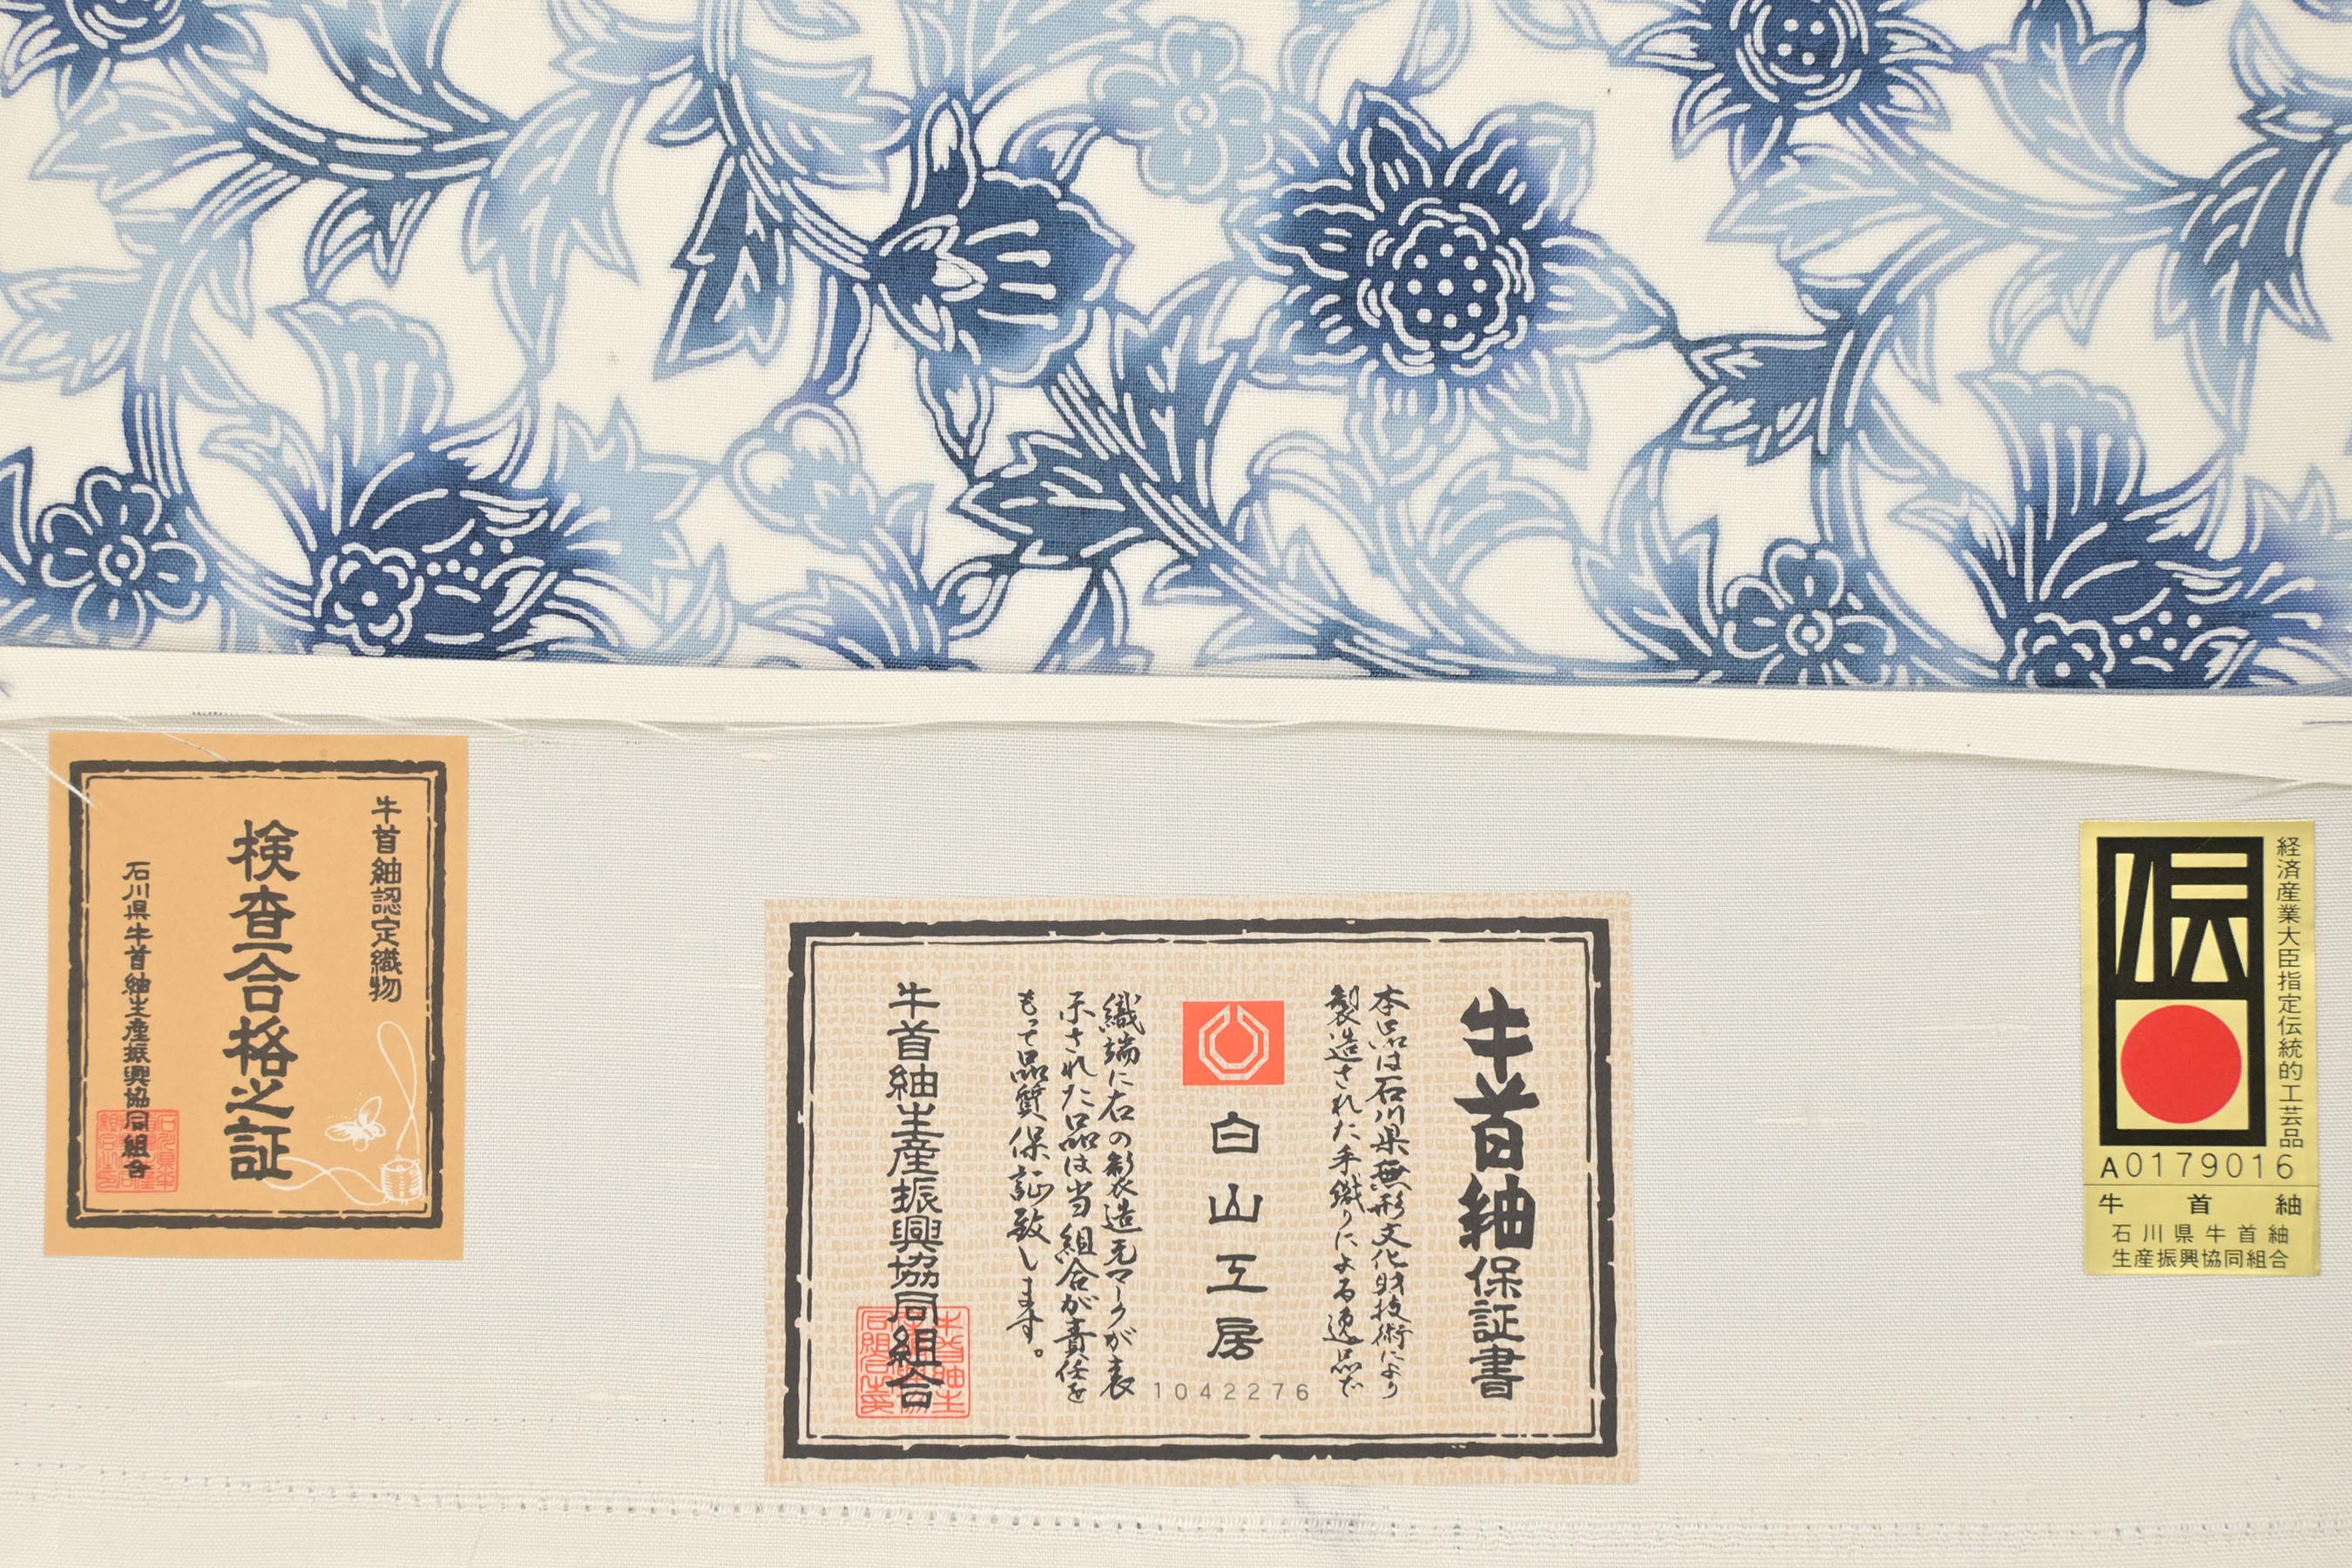 牛首紬認定織物
検査合格之証
石川県牛首紬生産振興協同組合
牛首紬保証書
本品は石川県無形文化財技術により
製造された手織りによる逸品で
白山工房
1042276
織端に右の製造元マークが表
示された品は当組合が責任を
もって品質保証致します。
牛首紬生産振興協同組合
経済産業大臣指定伝統的工芸品
伝
A0179016
牛首紬
石川県牛首紬
生産振興協同組合